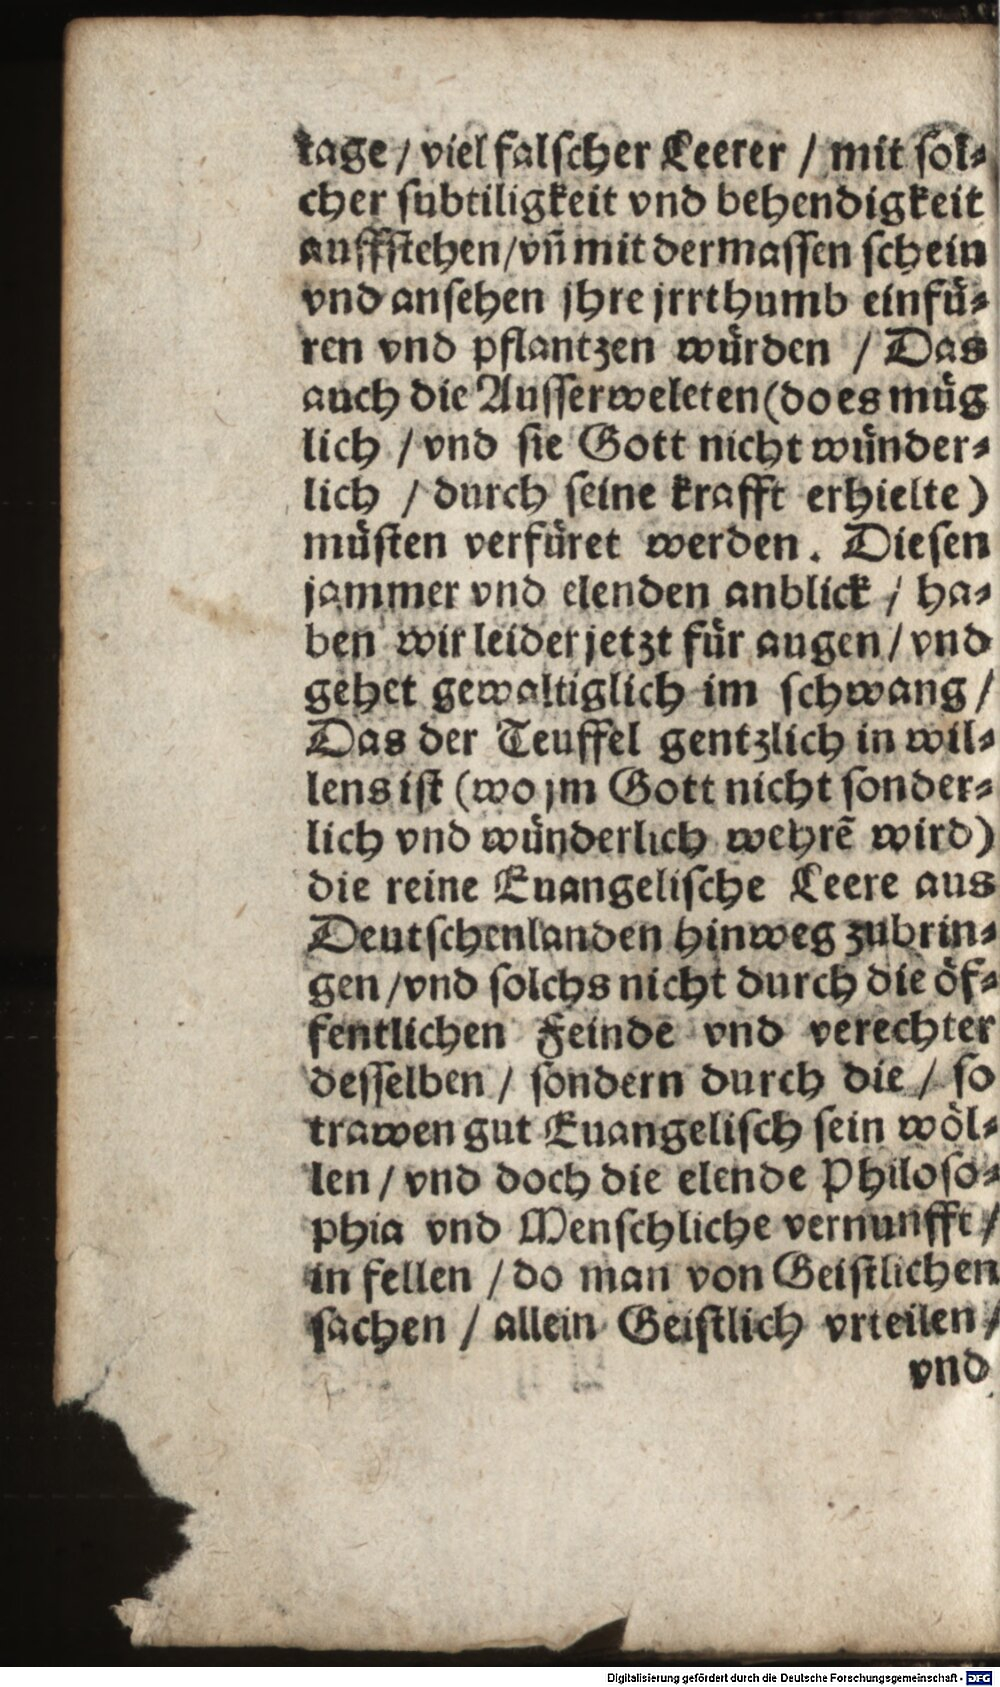 tage / viel falscher Leerer / mit sol⸗
cher subtiligkeit vnd behendigkeit
auffstehen / vñ mit dermassen schein
vnd ansehen jhre jrrthumb einfü⸗
ren vnd pflantzen würden / Das
auch die Ausserweleten (do es müg
lich / vnd sie Gott nicht wünder⸗
lich / durch seine krafft erhielte)
müsten verfüret werden. Diesen
jammer vnd elenden anblick / ha⸗
ben wir leider jetzt für augen / vnd
gehet gewaltiglich im schwang /
Das der Teuffel gentzlich in wil⸗
lens ist (wo jm Gott nicht sonder⸗
lich vnd wünderlich wehrẽ wird)
die reine Euangelische Leere aus
Deutschenlanden hinweg zubrin⸗
gen / vnd solchs nicht durch die öf⸗
fentlichen Feinde vnd verechter
desselben / sondern durch die / so
trawen gut Euangelisch sein wöl⸗
len / vnd doch die elende Philoso⸗
phia vnd Menschliche vernunfft /
in fellen / do man von Geistlichen
sachen / allein Geistlich vrteilen /
vnd
Digitalisierung gefördert durch die Deutsche Forschungsgemeinschaft - DFG